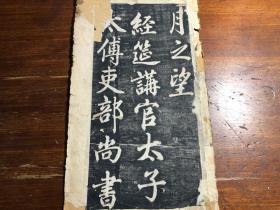 月之望
經筵講官太子
太傅吏部尚書